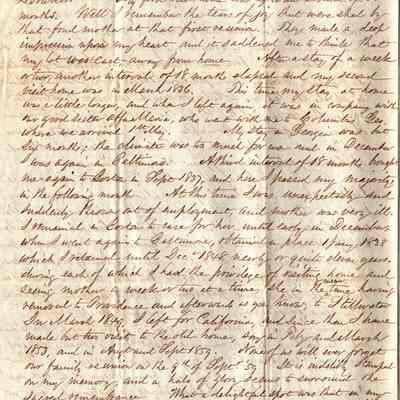 months. Well I remember the tears of joy that were shed by
that fond mother at that first reunion. They made a deep
impression upon my heart and it saddened me to think that
my lot was cast away from home. After a stay of a week
or two, another interval of 18 months elapsed and my second
visit home was in March 1836. This time my stay at home
was a little longer, and when I left again it was in company with
our good sister who went with me to Columbus Geo
where we arrived My stay in Georgia was but
six months; the climate was too much for me and in December
I was again in Baltimore. A third interval of 18 months brought
me again to Boston in Sept 1837, and here I passed my majority
in the following month. At this time I was unexpectedly and
suddenly thrown out of employment, and mother was very ill.
I remained in Boston to care for her, until early in December,
when I went again to Baltimore, obtained a place 1 Jany 1838
which I retained until Dec 1848 nearly or quite eleven years.
during each of which I had the privilege of visiting home and
seeing mother a week or two at a time, she in the mean time having
removed to Providence and afterwards as you know, to Stillwater
In March 1849 I left for California, and since then I have
made but two visits to the old home, say in Feby and March
1853, and in Augt and Sept 1859. None of us will ever forget
our family reunion on the 9th of Sept '59. It is indelibly stamped
on my memory, and a halo of glory seems to surround the
sacred remembrance. What a delightful spot was that in my